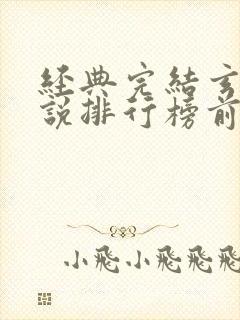 經典完結玄
說排行榜前
小飛小飛飛飛